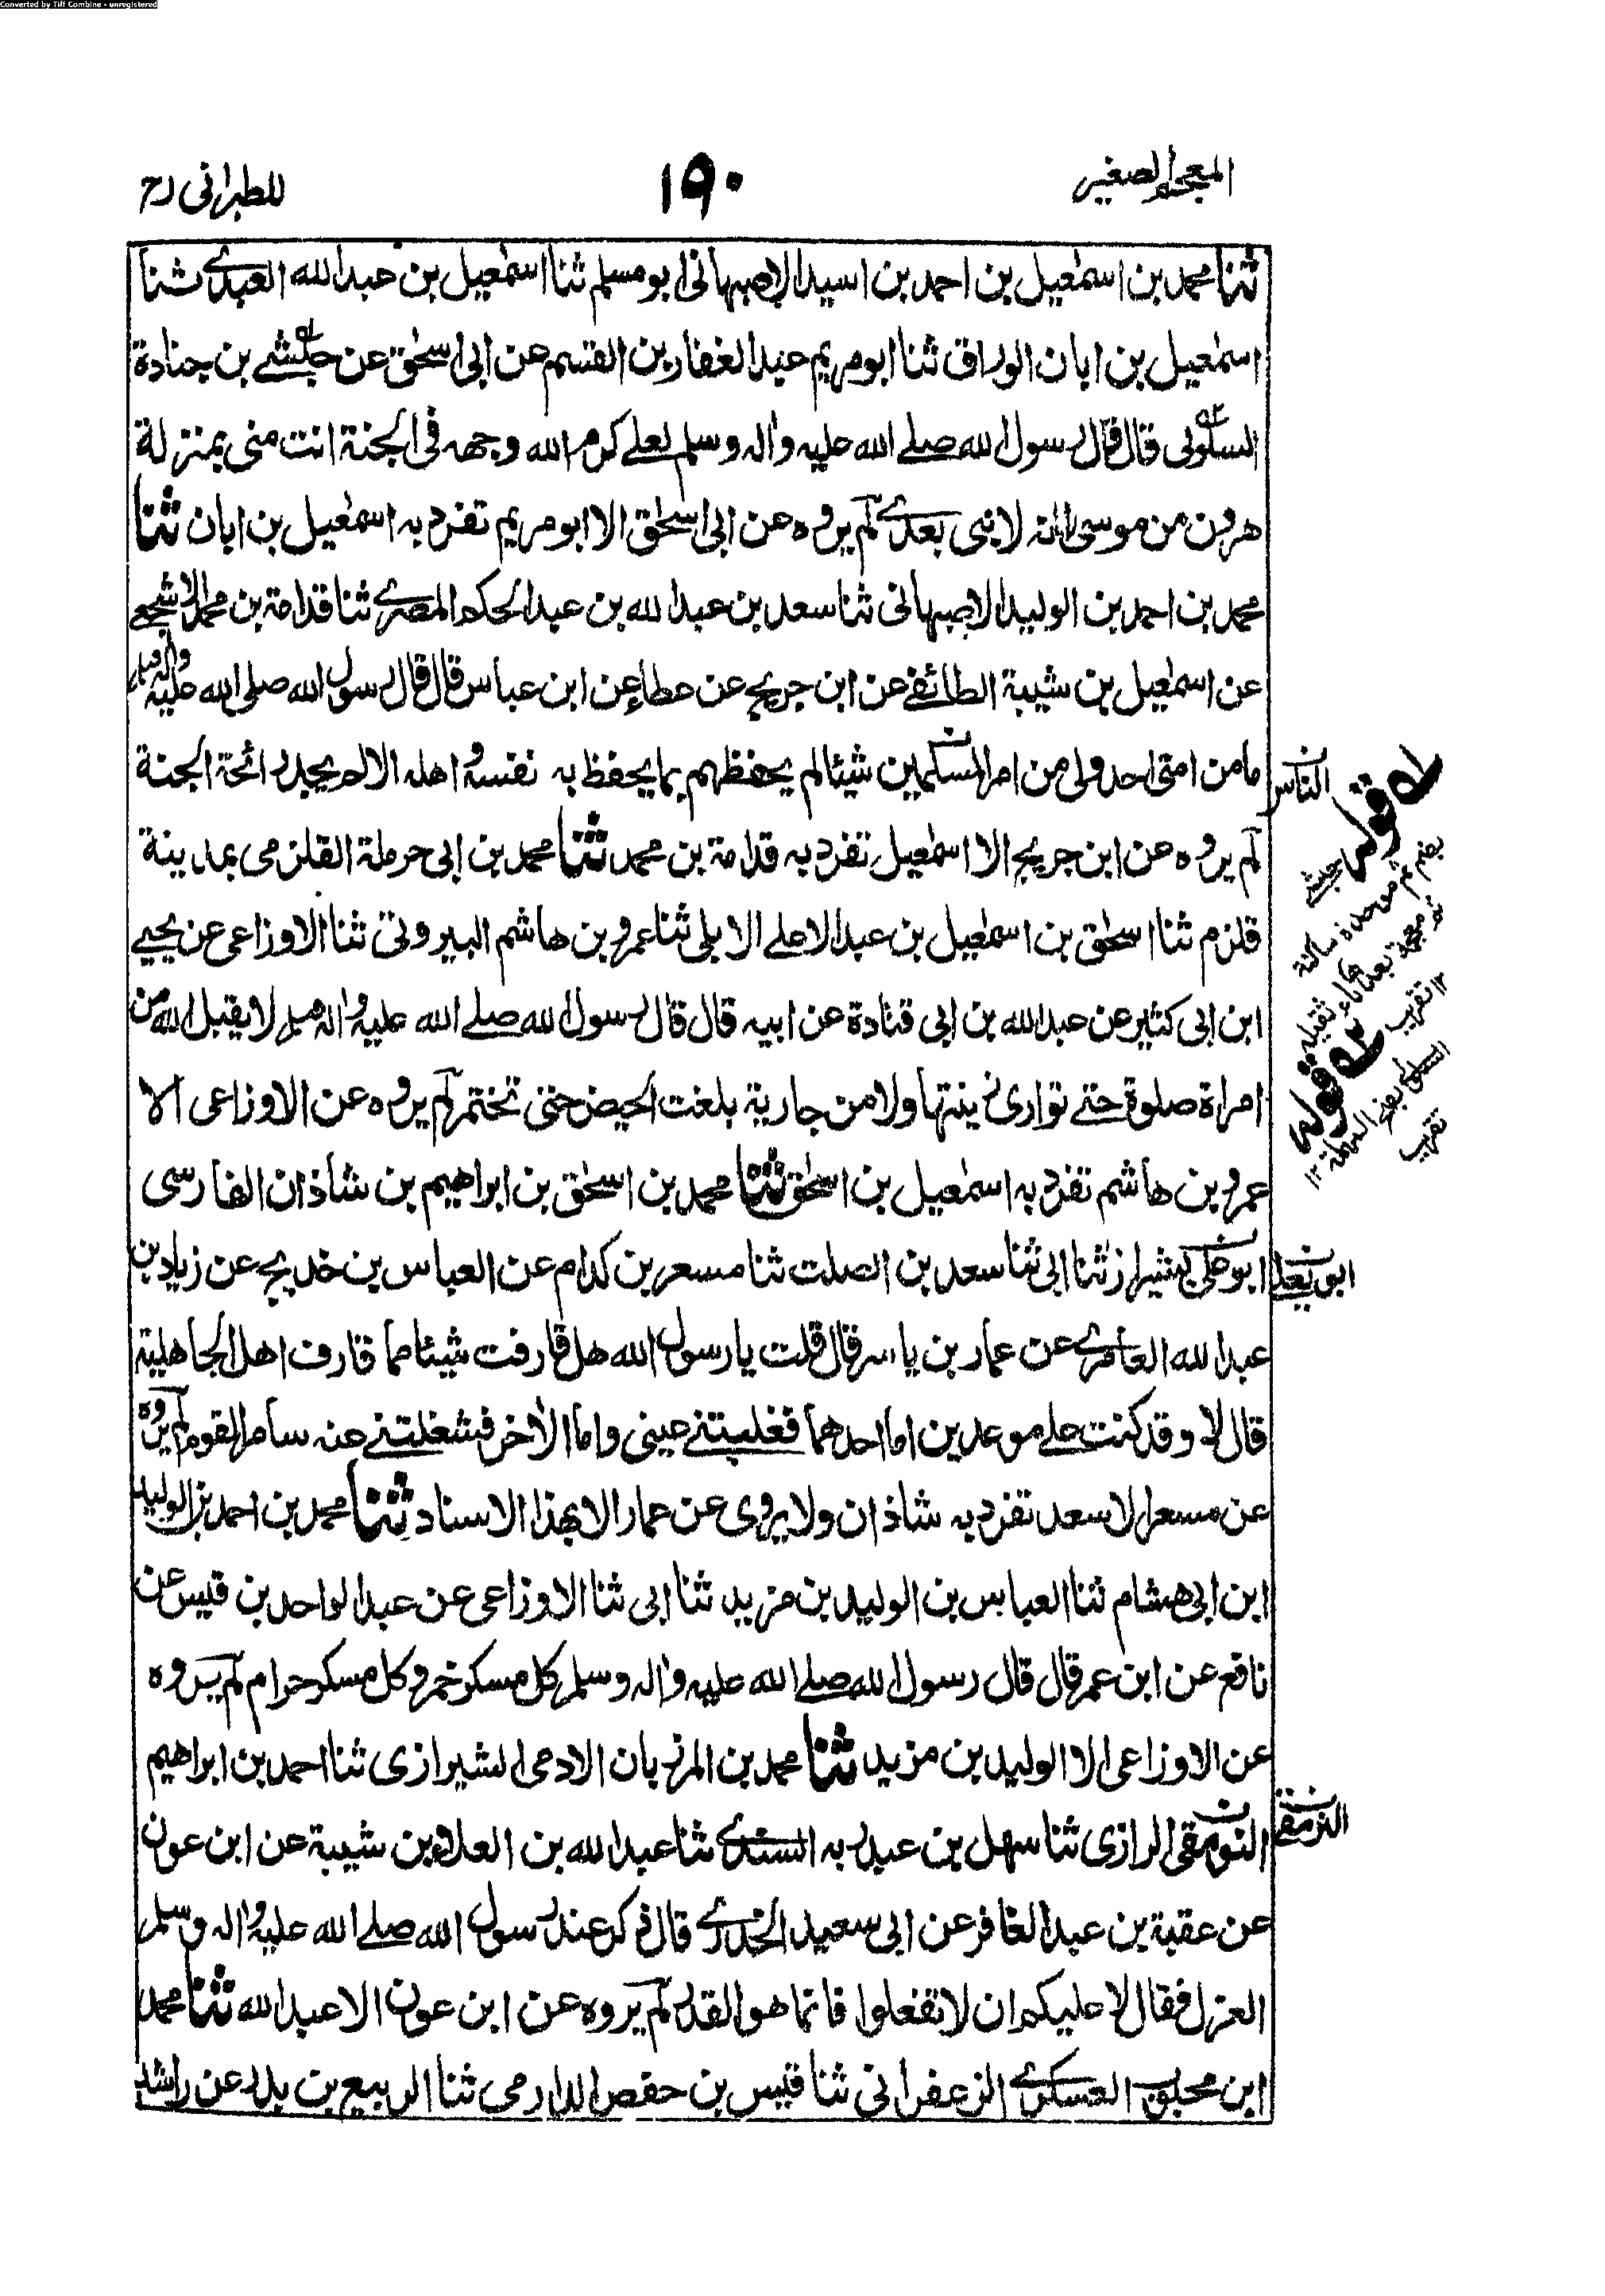 Converted by Tiff Combine - unregistered
المعجم الصغير
١٩٠
للطبرانى رح
ثنا محمد بن اسمعيل بن احمد بن اسيد الاصبهانى ابو مسلم ثنا اسمعيل بن عبد الله العبدے ثنا
اسمعيل بن ابان الوراق ثنا ابو مريم عبد الغفار بن القسم عن ابى اسحق عن حبشے بن جنادة
السلولى قال قال رسول الله صلے الله عليه واله وسلم لعلے كرم الله وجهه فى الجنة انت منى بمنزلة
هرون من موسى الا انه لا نبى بعدے لم يروه عن ابى اسحق الا ابو مريم تفرد به اسمعيل بن ابان ثنا
محمد بن احمد بن الوليد الاصبهانى ثنا سعد بن عبد الله بن عبد الحكم المصرے ثنا قدامة بن محمد الاشجعے
عن اسمعيل بن شيبة الطائفے عن ابن جريج عن عطاء عن ابن عباس قال قال رسول الله صلى الله عليه واله وسلم
ما من امتى احد ولى من امر المسلمين شيئا لم يحفظهم بما يحفظ به نفسه و اهله الا لم يجد رائحة الجنة
الناس
لم يروه عن ابن جريج الا اسمعيل تفرد به قدامة بن محمد ثنا محمد بن ابى حرملة القلزمى بمدينة
قلزم ثنا اسحق بن اسمعيل بن عبد الاعلے الايلى ثنا عمرو بن هاشم البيروتى ثنا الاوزاعى عن يحيے
ابن ابى كثير عن عبد الله بن ابى قتادة عن ابيه قال قال رسول الله صلے الله عليه واله وسلم لا يقبل الله من
امراة صلوة حتے توارى زينتها ولا من جارية بلغت الحيض حتى تختمر لم يروه عن الاوزاعى الا
عمرو بن هاشم تفرد به اسمعيل بن اسحق ثنا محمد بن اسحق بن ابراهيم بن شاذان الفارسى
ابو على بشيراز ثنا ابى ثنا سعد بن الصلت ثنا مسعر بن كدام عن العباس بن خديج عن زياد بن
ابو يعلے
عبد الله العامرے عن عمار بن ياسر قال قلت يا رسول الله هل قارفت شيئا مما قارف اهل الجاهلية
قال لا وقد كنت علے موعدين اما احدهما فغلبتنے عينى واما الاخر فشغلتنے عنه سامر القوم لم يروه
عن مسعر الا سعد تفرد به شاذان ولا يروى عن عمار الا بهذا الاسناد ثنا محمد بن احمد بن الوليد
ابن ابى هشام ثنا العباس بن الوليد بن مزيد ثنا ابى ثنا الاوزاعى عن عبد الواحد بن قيس عن
نافع عن ابن عمر قال قال رسول الله صلے الله عليه واله وسلم كل مسكر خمر وكل مسكر حرام لم يروه
عن الاوزاعى الا الوليد بن مزيد ثنا محمد بن المرزبان الادمى الشيرازى ثنا احمد بن ابراهيم
النومقى الرازى ثنا سهل بن عبد ربه السندے ثنا عبد الله بن العلاء بن شيبة عن ابن عون
النرمقے
عن عقبة بن عبد الغافر عن ابى سعيد الخدرے قال ذكر عند رسول الله صلے الله عليه واله وسلم
العزل فقال لا عليكم ان لا تفعلوا فانما هو القدر لم يروه عن ابن عون الا عبد الله ثنا محمد
ابن محلبق العسكرے الزعفرانى ثنا قيس بن حفص الدارمى ثنا الربيع بن بدر عن راشد
له قوله حبشے
بضم ثم موحدة ساكنة
ثم معجمة بعدها ياء ثقيلة
١٢ تقريب
٢ه قوله
السلولى بفتح المهملة ١٢
تقريب